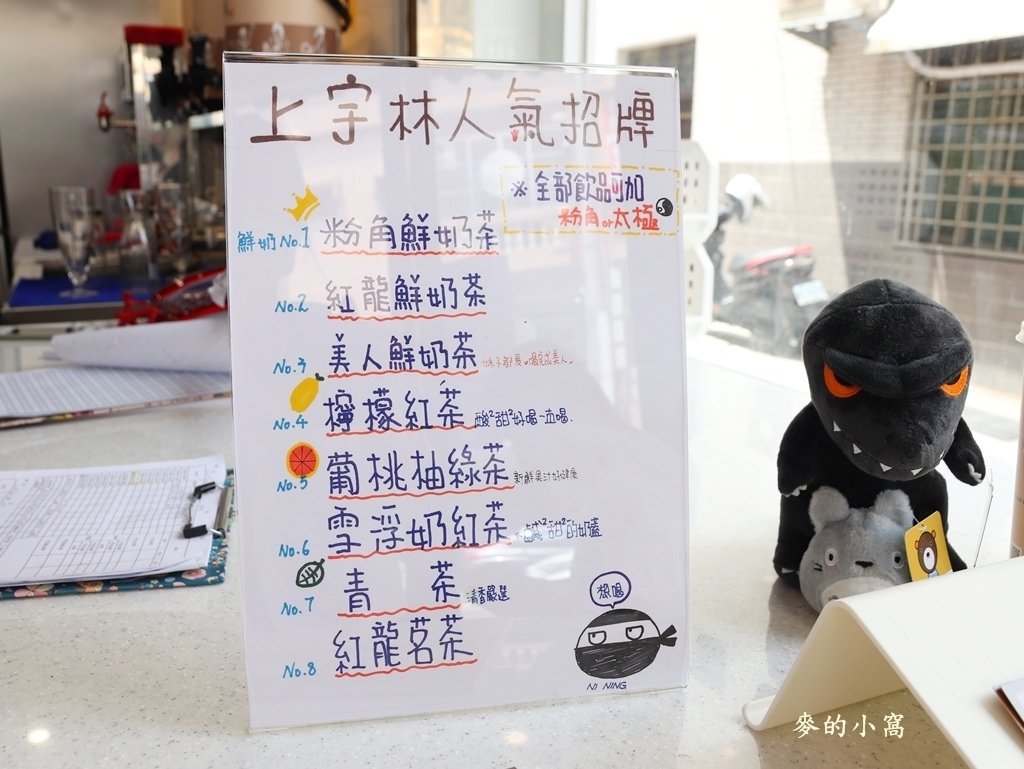 上宇林人氣招牌
※全部飲品可加
粉角or太極
鮮奶 No.1 粉角鮮奶茶
No.2 紅龍鮮奶茶
No.3 美人鮮奶茶
No.4 檸檬紅茶 酸²甜²好喝一直喝.
No.5 葡桃柚綠茶
No.6 雪浮奶紅茶 鹹²甜²的奶蓋
No.7 青 茶 清香嚴選
No.8 紅龍茗茶
想喝
NI NING
麥的小窩